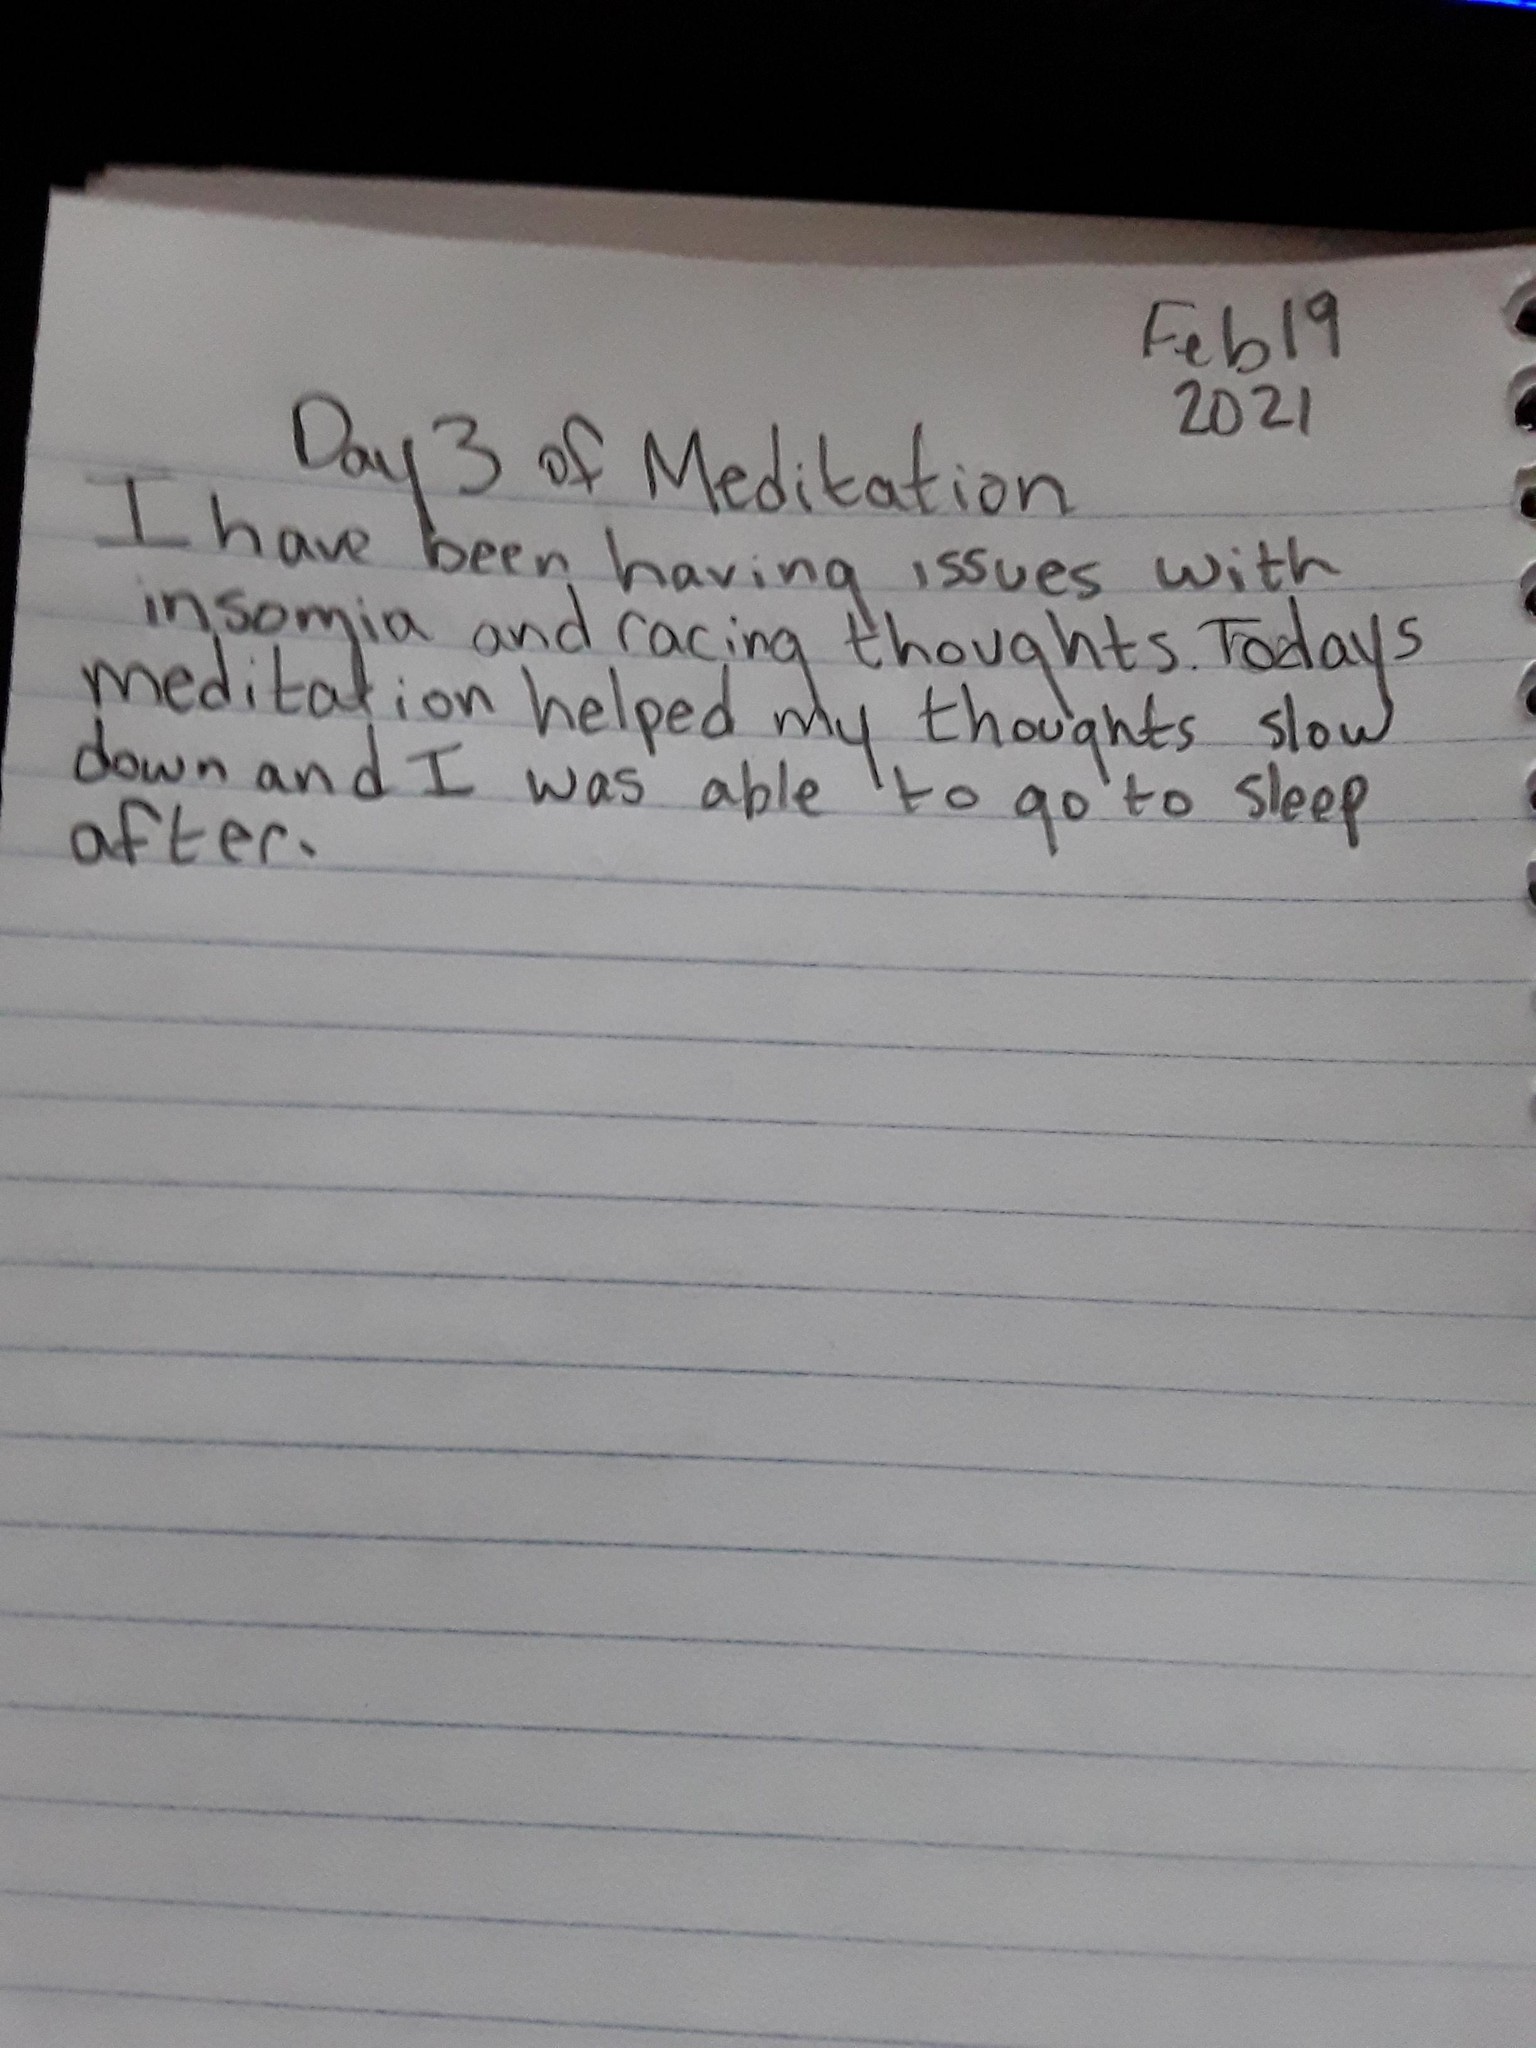 Feb 19
2021
Day 3 of Meditation
I have been having issues with
insomia and racing thoughts. Todays
meditation helped my thoughts slow
down and I was able to go to sleep
after.